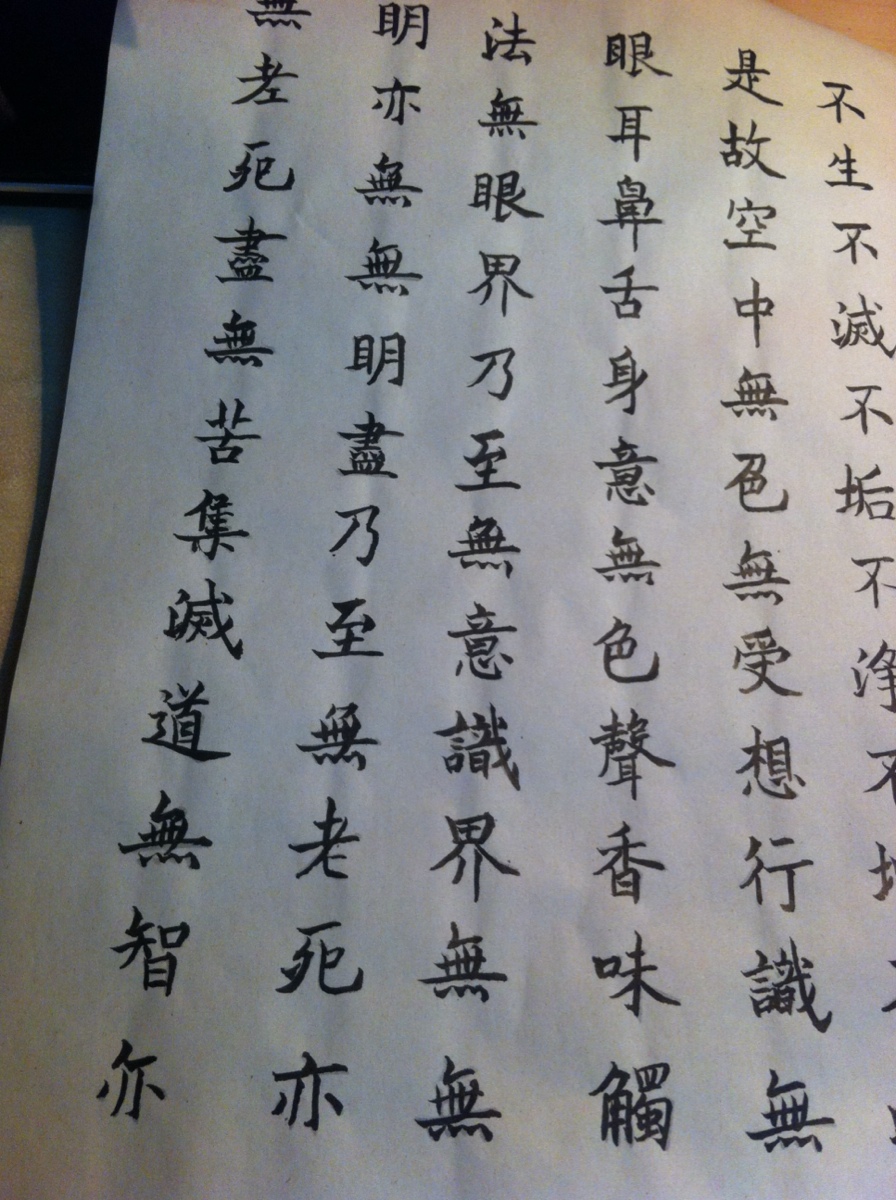 不生不滅不垢不淨不
是故空中無色無受想行識無
眼耳鼻舌身意無色聲香味觸
法無眼界乃至無意識界無無
明亦無無明盡乃至無老死亦
無老死盡無苦集滅道無智亦